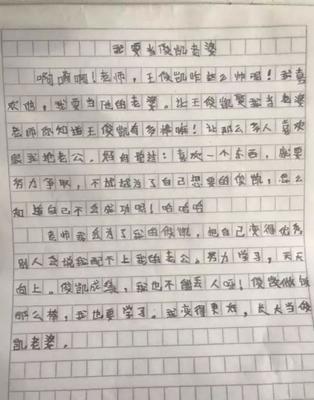 我要当俊凯老婆
啊啊啊!老师,王俊凯咋这么帅啊!我喜
欢他,我要当他的老婆。让王俊凯娶我当老婆
老师你知道王俊凯有多棒嘛!让那么多人喜欢
我地老公。经自:喜欢一个东西,就要
努力争取,不试试为了自己想要的俊凯,怎么
知道自己不会成功呢!哈哈哈
老师我会为了我的俊凯,把自己变得优秀
别人会说我配不上我的老公,努力学习,天天
向上。俊凯成绩,我也不能丢人呀!俊凯做饭
那么棒,我也要学习。我变得更好,长大当俊
凯老婆。